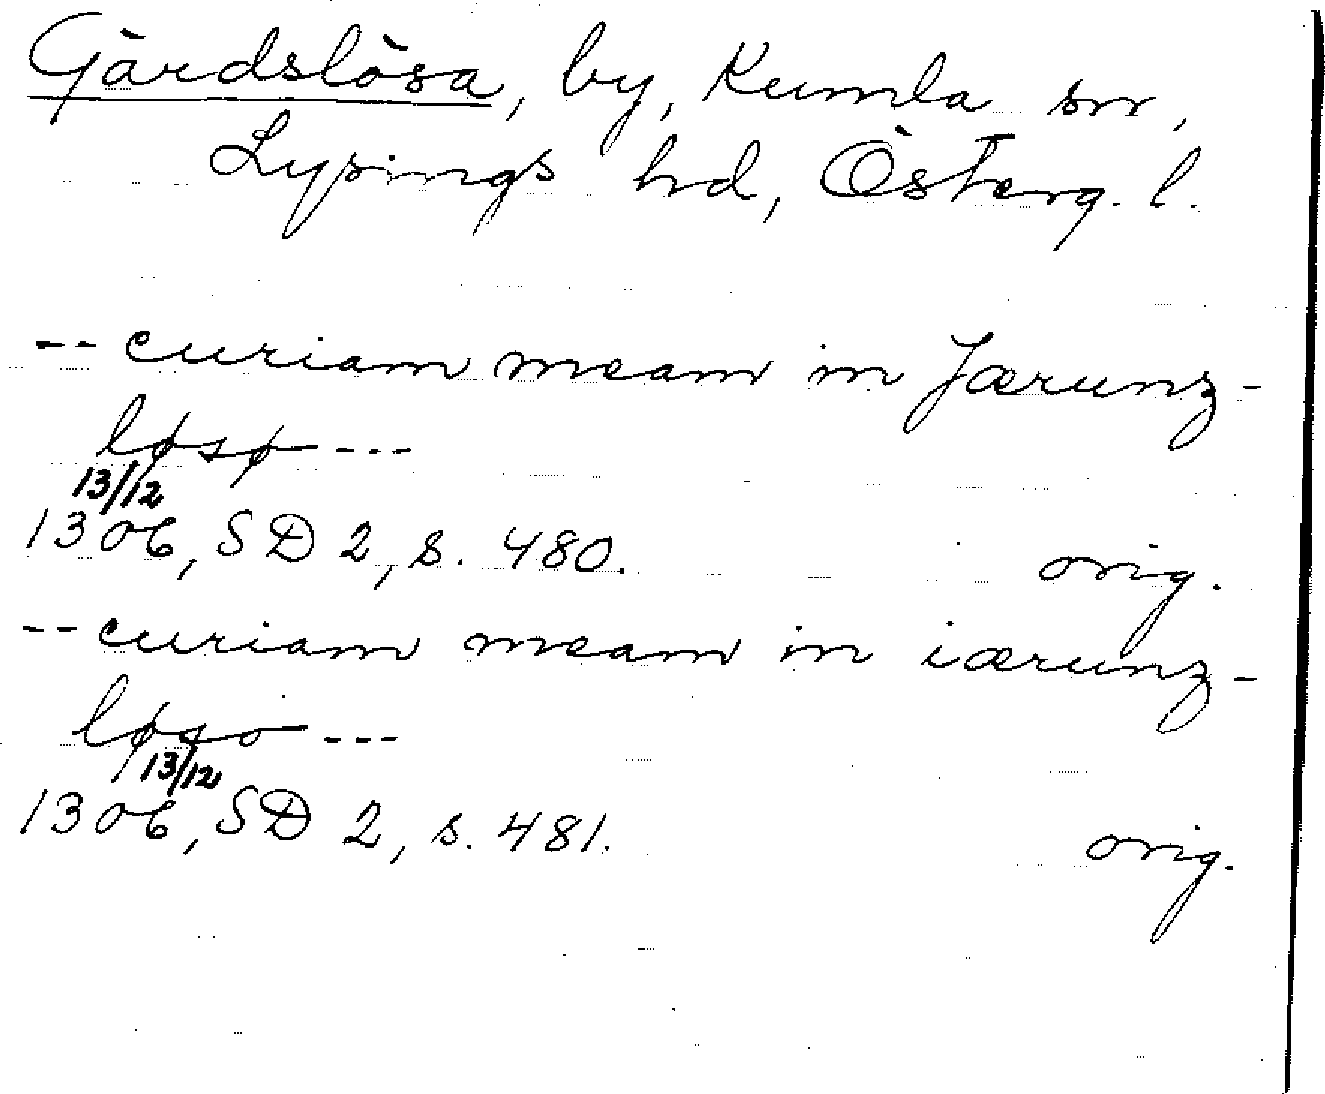 Gärdslösa, by, Kumla sn,
Lysings hd, Österg. l.
-- curiam meam in Jærunz-
løsø ---
13/12
1306, SD 2, s. 480. orig.
-- curiam meam in iærunz-
løso ---
13/12
1306, SD 2, s. 481. orig.